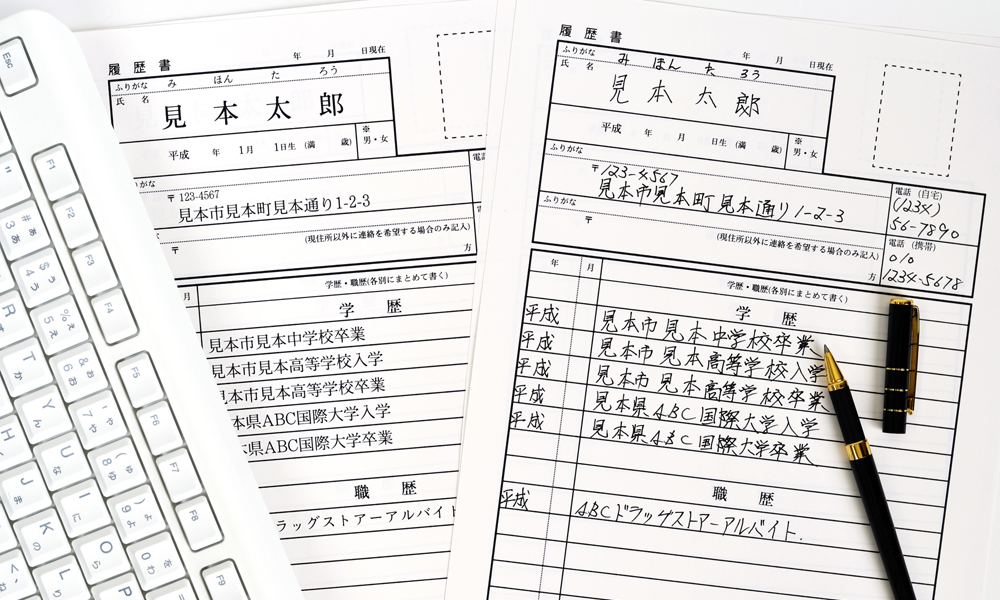 履歴書
年 月 日現在
ふりがな み ほん た ろう
氏 名
見本太郎
平成 年 1月 1日生 (満 歳)
※
男・女
がな
電話
〒123-4567
見本市見本町見本通り1-2-3
(現住所以外に連絡を希望する場合のみ記入)
〒
方
月
学歴・職歴(各別にまとめて書く)
学 歴
見本市見本中学校卒業
見本市見本高等学校入学
見本市見本高等学校卒業
本県ABC国際大学入学
県ABC国際大学卒業
職 歴
ラッグストアーアルバイト
履歴書
年 月 日現在
ふりがな み ほん た ろう
氏 名
見本太郎
平成 年 月 日生 (満 歳)
※
男・女
ふりがな
〒123-4567
見本市見本町見本通り1-2-3
電話 (自宅)
(1234)
56-7890
ふりがな
(現住所以外に連絡を希望する場合のみ記入)
〒
方
電話 (携帯)
010
1234-5678
年 月
学歴・職歴(各別にまとめて書く)
学 歴
平成 見本市見本中学校卒業
平成 見本市見本高等学校入学
平成 見本市見本高等学校卒業
平成 見本県ABC国際大学入学
平成 見本県ABC国際大学卒業
職 歴
平成 ABCドラッグストアーアルバイト.
ESC
F1
F2
F3
F4
F5
F6
F7
F8
F9
R
T
Y
U
I
O
P
H
J
K
L